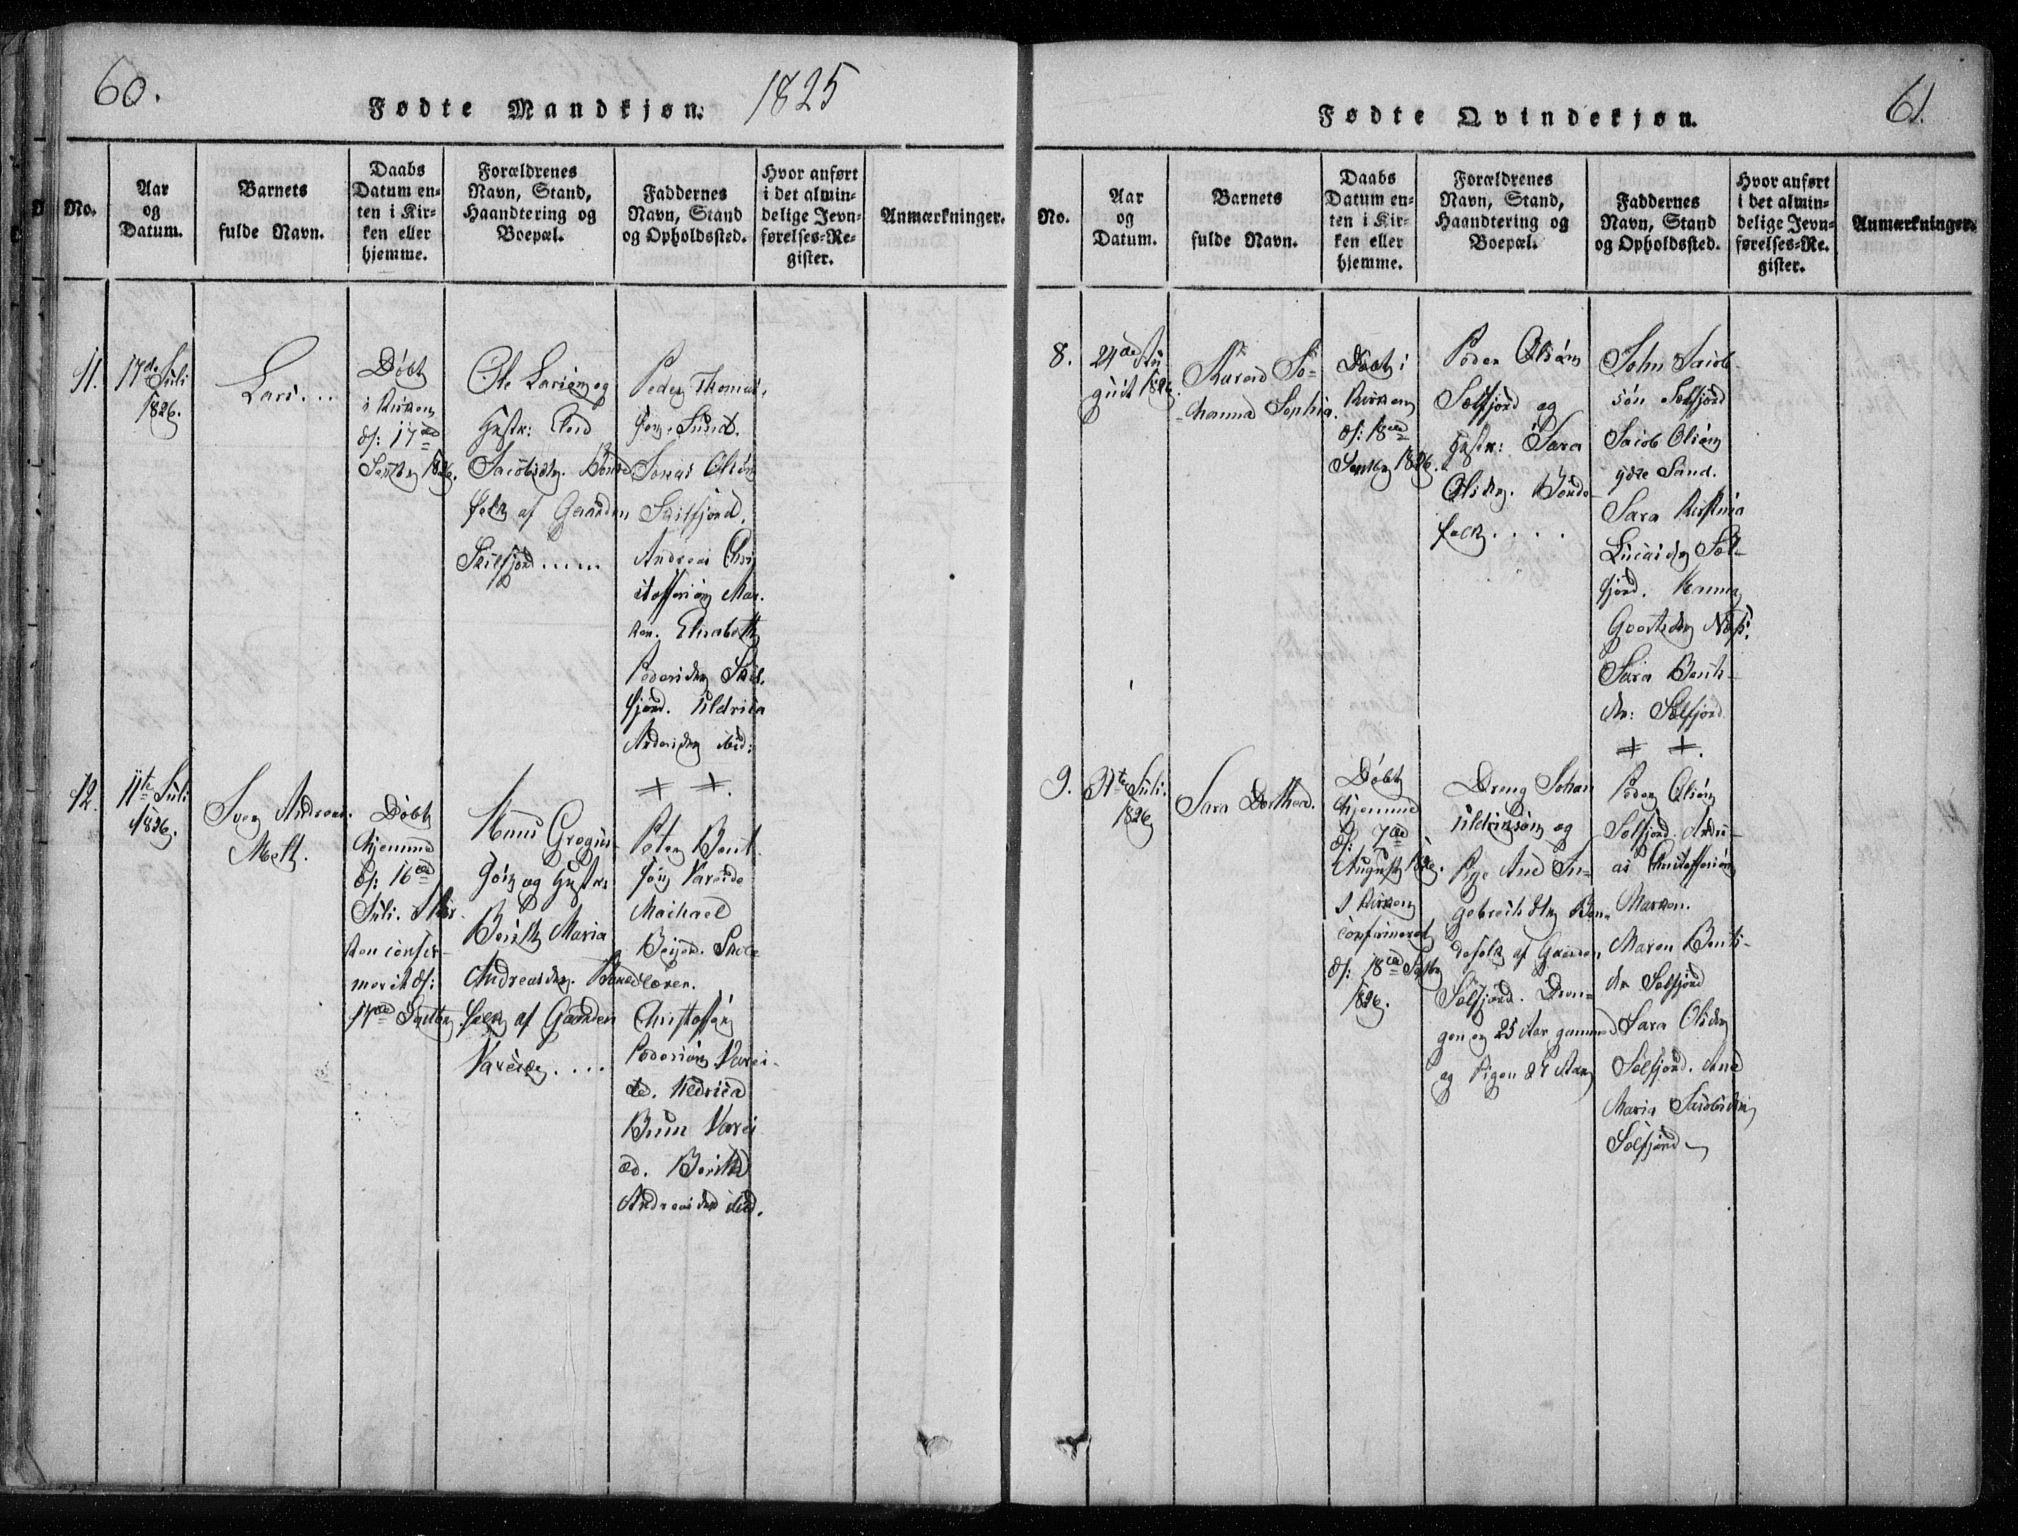 60.
Fødte Mandkjøn.
1825
No.
Aar
og
Datum.
Barnets
fulde Navn.
Daabs
Datum en-
ten i Kir-
ken eller
hjemme.
Forældrenes
Navn, Stand,
Haandtering og
Boepæl.
Faddernes
Navn, Stand
og Opholdssted.
Hvor anført
i det almin-
delige Jevn-
førelses-Re-
gister.
Anmærkninger.
11.
17de Juli
1826.
Lars...
Døbt
i Kirken
d: 17de
Septbr 1826.
Ole Larsen og
Hustr:
Jacobsdtr. Bønde
folk af Gaarden
Skilfjord.....
Peder Thomas-
sen. Sund.
Jonas Olsøn
Skilfjord.
Andreas Chri
stoffersøn Mar-
ken. Elisabeth
Pedersdtr Skil-
fjord. Uldrica
Andersdtr ibid:
12.
11te Juli
1826.
Sven Andreas
Meth.
Døbt
hjemme
d: 16de
Juli. I Kir-
ken confir-
meret d:
17de Septbr
Hans Gregus
søn og Hustr:
Berith Maria
Andreasdtr. Bønde
folk af Gaarden
Vareide....
+ +.
Peter Bent
søn Vareide
Michael
Beijer. Skole
lærer.
Christoffer
Pedersøn Varei-
de. Uldrica
Bum Varei
de. Berith
Andreasdtr ibid.
61.
Fødte Qvindekjøn.
No.
Aar
og
Datum.
Barnets
fulde Navn.
Daabs
Datum en-
ten i Kir-
ken eller
hjemme.
Forældrenes
Navn, Stand,
Haandtering og
Boepæl.
Faddernes
Navn, Stand
og Opholdssted.
Hvor anført
i det almin-
delige Jevn-
førelses-Re-
gister.
Anmærkninger.
8.
24de Au
gust 1826.
Karen Jo-
hanna Sophia.
Døbt i
Kirken
d: 18de
Septbr 1826.
Peder Olsøn
Sølfjord og
Hustr: Sara
Olsdtr. Bønde
folk....
John Jacob-
søn Sølfjord
Jacob Olsøn
ydre Sand.
Sara Kirstina
Lucasdtr Søl-
fjord. Hanna
Goertsdtr Næs.
Sara Bents-
dtr: Sølfjord
+ +.
9.
31te Juli.
1826
Sara Dorthea.
Døbt
hjemme
d: 7de
August 1826.
I Kirken
confirmeret
d: 18de Septbr
1826.
Dreng Johan
Uldricksøn og
Pige Ane In-
gebrechtsdtr Bøn-
defolk af Gaarden
Sølfjord. Dren-
gen er 25 Aar gammel
og Pigen 27 Aar
Peder Olsøn
Sølfjord. Andre-
as Christoffersøn
Marken.
Maren Bents-
dr Sølfjord
Sara Olsdtr
Sølfjord. Ane
Maria Jacobsdtr
Sølfjord